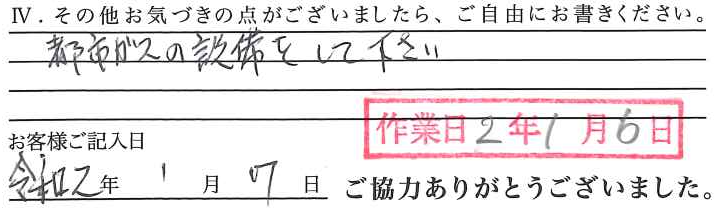 Ⅳ．その他お気づきの点がございましたら、ご自由にお書きください。
都市ガスの設備をして下さい
作業日2年1月6日
お客様ご記入日
令和2年1月7日 ご協力ありがとうございました。